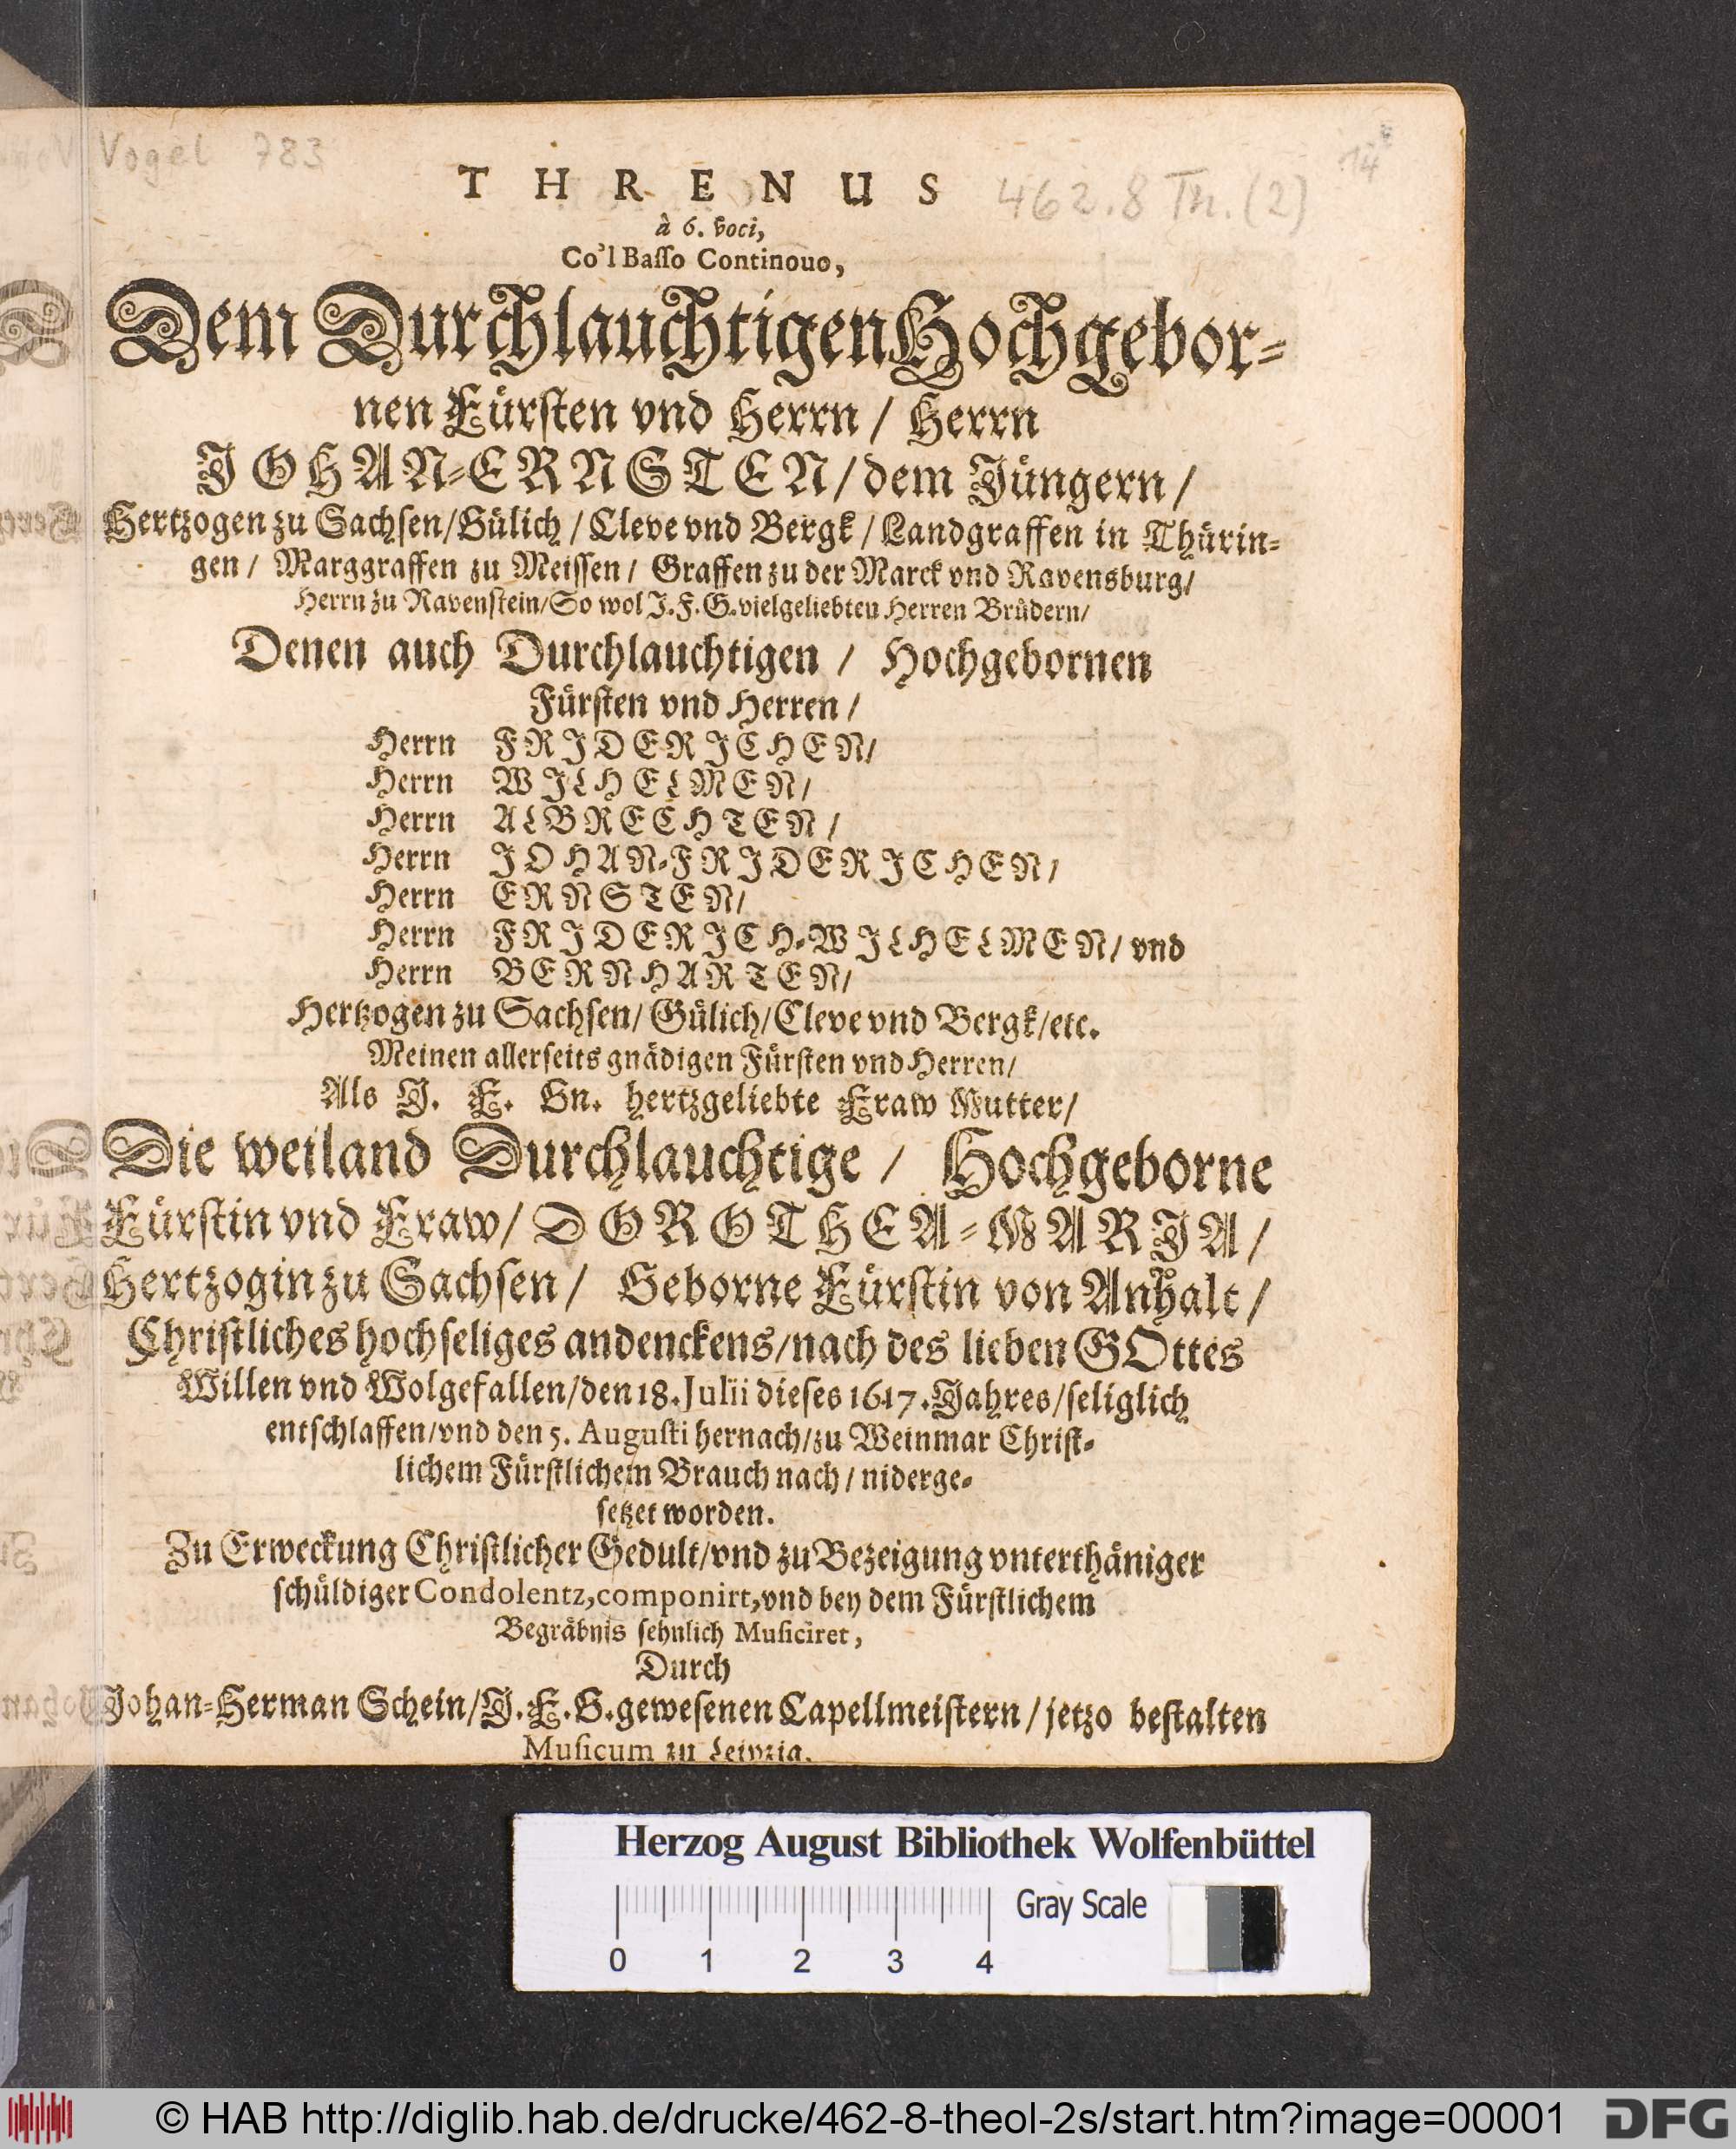 Vogel 783
14
T H R E N U S
462.8 Th. (2)
à 6. voci,
Co'l Baſſo Continouo,
Dem Durchlauchtigen Hochgebor-
nen Fürſten vnd Herrn / Herrn
JOHAN-ERNSTEN / dem Jüngern /
Hertzogen zu Sachſen / Gülich / Cleve vnd Bergk / Landgraffen in Thürin-
gen / Marggraffen zu Meiſſen / Graffen zu der Marck vnd Ravensburg /
Herrn zu Ravenſtein / So wol J. F. G. vielgeliebten Herren Brüdern /
Denen auch Durchlauchtigen / Hochgebornen
Fürſten vnd Herren /
Herrn FRIDERICHEN /
Herrn WILHELMEN /
Herrn ALBRECHTEN /
Herrn JOHAN-FRIDERICHEN /
Herrn ERNSTEN /
Herrn FRIDERICH-WILHELMEN / vnd
Herrn BERNHARTEN /
Hertzogen zu Sachſen / Gülich / Cleve vnd Bergk / etc.
Meinen allerſeits gnädigen Fürſten vnd Herren /
Als J. F. Gn. hertzgeliebte Fraw Mutter /
Die weiland Durchlauchtige / Hochgeborne
Fürſtin vnd Fraw / DOROTHEA-MARIA /
Hertzogin zu Sachſen / Geborne Fürſtin von Anhalt /
Chriſtliches hochſeliges andenckens / nach des lieben GOttes
Willen vnd Wolgefallen / den 18. Julii dieſes 1617. Jahres / ſeliglich
entſchlaffen / vnd den 5. Auguſti hernach / zu Weinmar Chriſt-
lichem Fürſtlichem Brauch nach / niderge-
ſetzet worden.
Zu Erweckung Chriſtlicher Gedult / vnd zu Bezeigung vnterthäniger
ſchüldiger Condolentz, componirt, vnd bey dem Fürſtlichem
Begräbnis ſehnlich Muſiciret,
Durch
Johan-Herman Schein / J. F. G. geweſenen Capellmeiſtern / jetzo beſtalten
Muſicum zu Leipzig.
Herzog August Bibliothek Wolfenbüttel
Gray Scale
0 1 2 3 4
© HAB http://diglib.hab.de/drucke/462-8-theol-2s/start.htm?image=00001
DFG